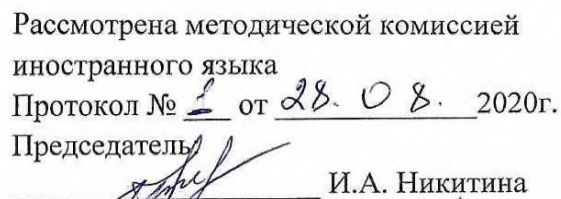 Рассмотрена методической комиссией
иностранного языка
Протокол № 1 от 28. 08. 2020г.
Председатель
И.А. Никитина